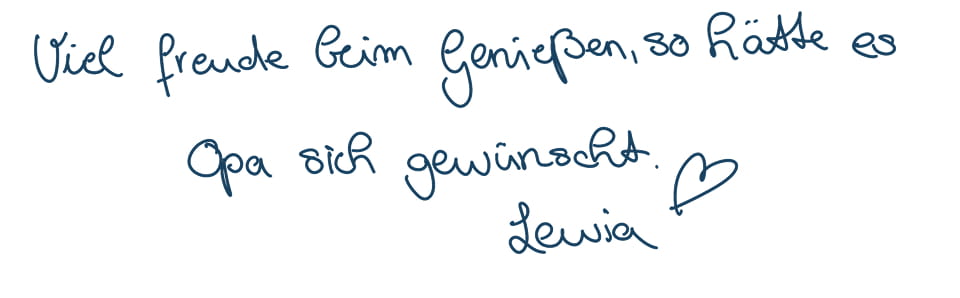 Viel freude beim Genießen, so hätte es
Opa sich gewünscht. ♡
Lewia